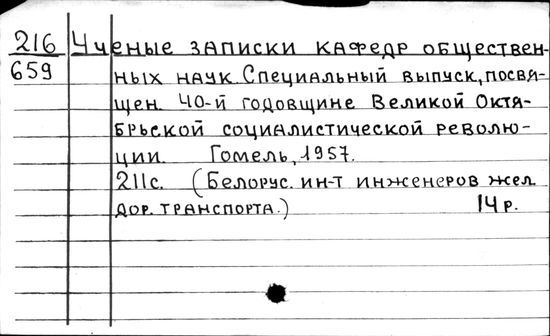 216 Ученые записки кафедр обществен-
659 ных наук. Специальный выпуск, посвя-
щен. 40-й годовщине Великой Октя-
брьской социалистической револю-
ции. Гомель, 1957.
211с. (Белорус. ин-т инженеров жел.
дор. транспорта.) 14р.